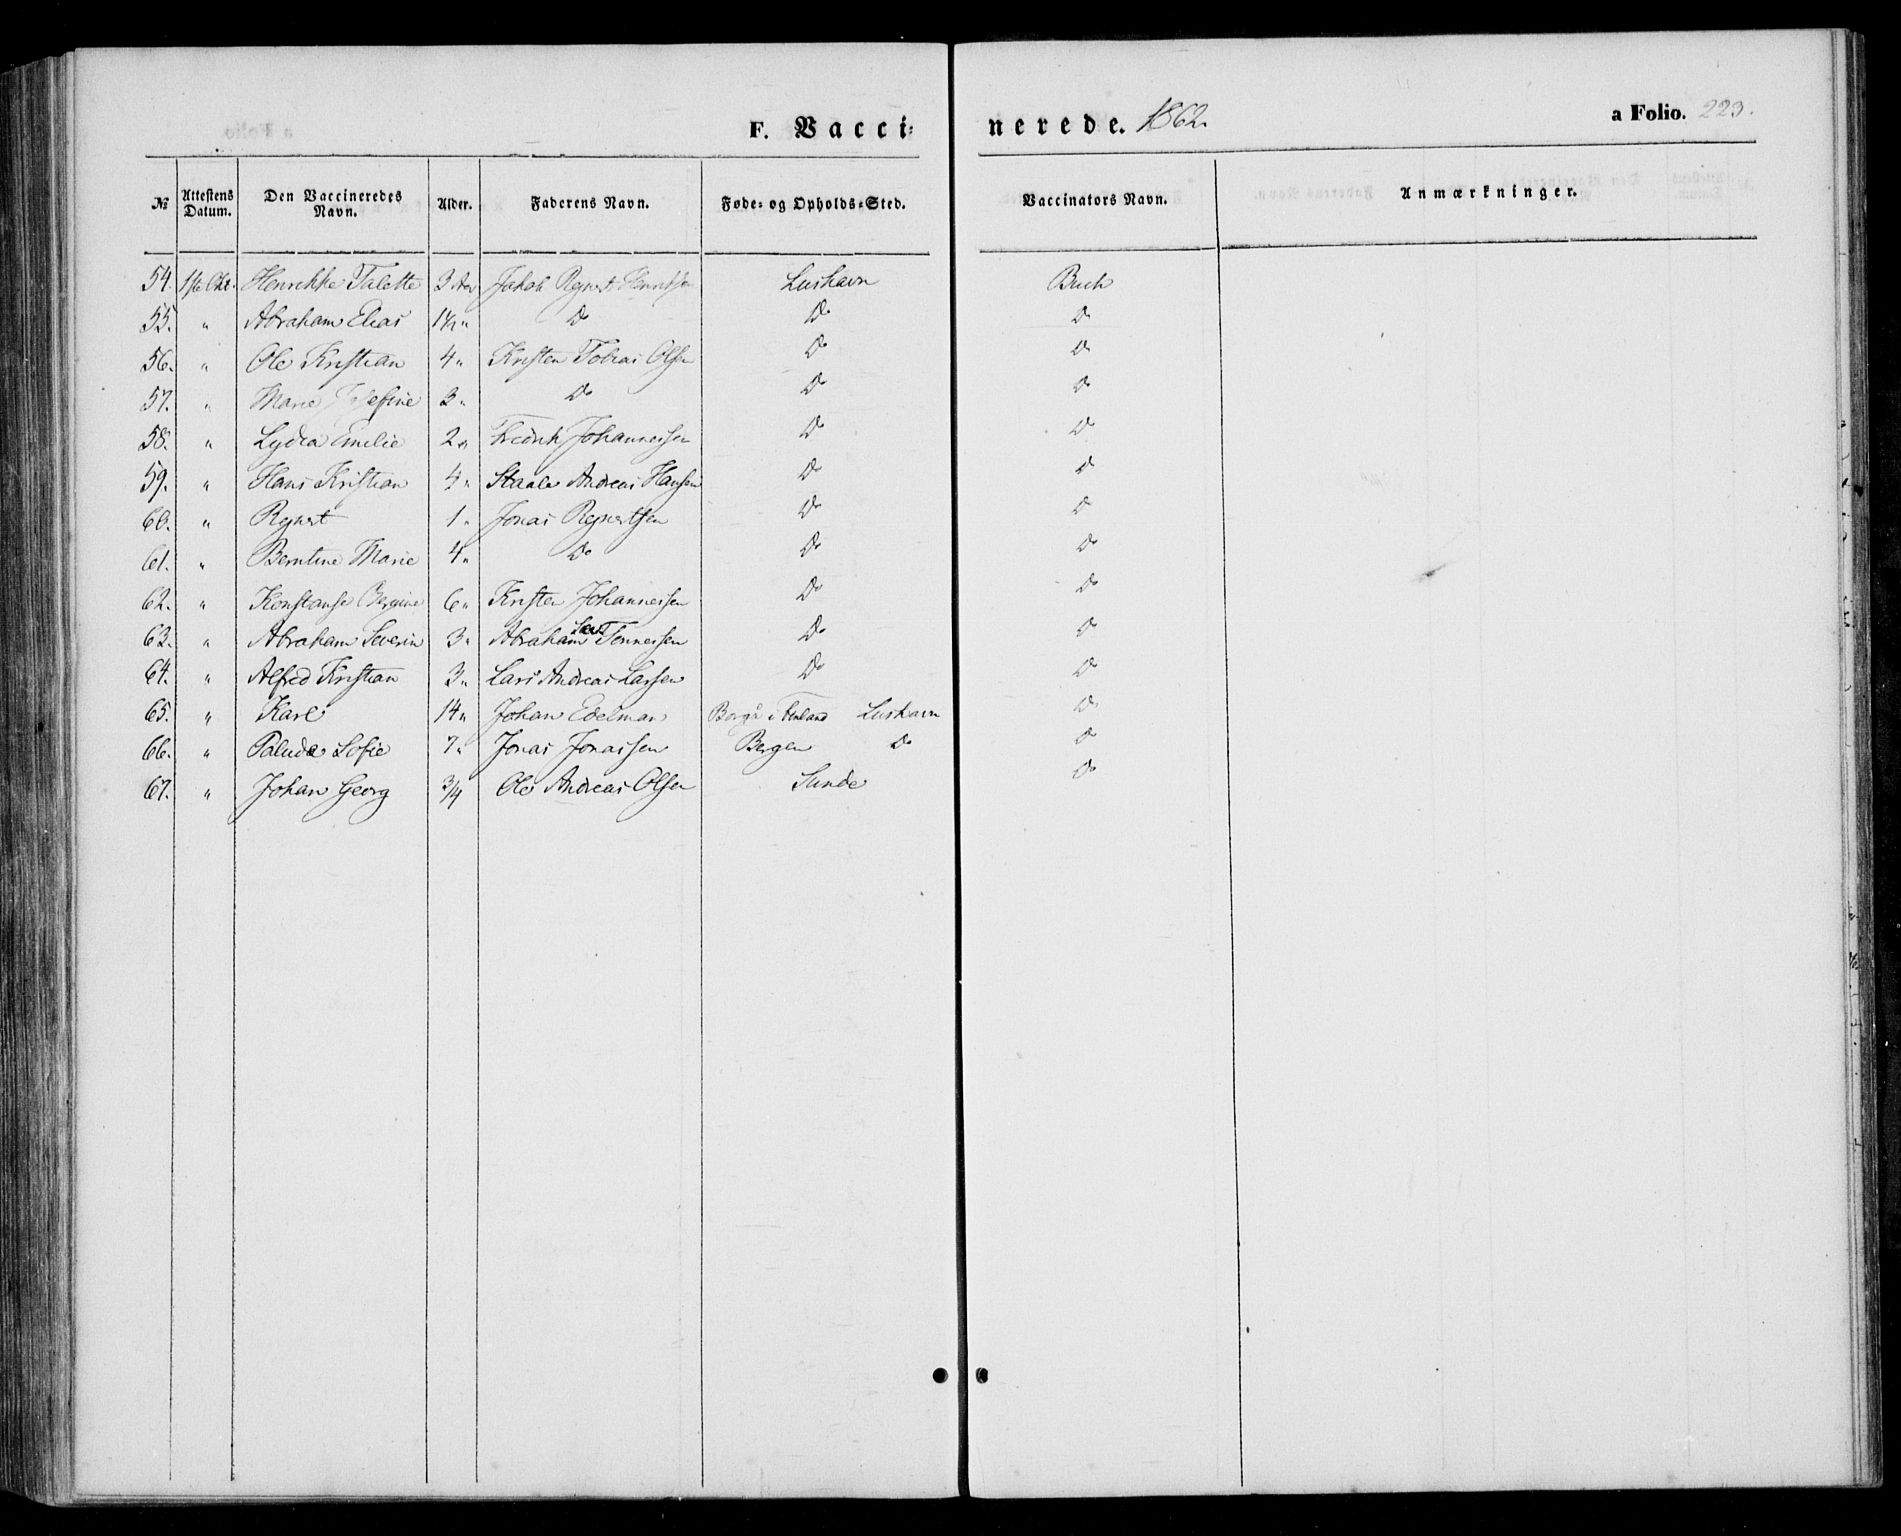 F. Vaccinerede. 1862. a Folio. 223.
№ Attestens Datum. Den Vaccineredes Navn. Alder. Faderens Navn. Føde- og Opholds-Sted. Vaccinators Navn. Anmærkninger.
54. Okt. Henrikke Talette 3 Aar Jakob Regnert Henriksen Lushavn Buch
55. " Abraham Elias 1½ " Do Do Do
56. " Ole Kristian 4 " Kristen Tobias Olsen Do Do
57. " Marie Josefine 3 " Do Do Do
58. " Lydia Emilie 2 " Fredrik Johannessen Do Do
59. " Hans Kristian 4 " Staale Andreas Hansen Do Do
60. " Regnert 1 " Jonas Regnertsen Do Do
61. " Berntine Marie 4 " Do Do Do
62. " Konstanse Bergine 6 " Kristen Johannessen Do Do
63. " Abraham Severin 3 " Abraham Tønnessen Do Do
64. " Alfred Kristian 3 " Lars Andreas Larsen Do Do
65. " Karl 14 " Johan Edelman Borgå i Finland Lushavn Do
66. " Paluda Sofie 7 " Jonas Jonassen Bergen Do Do
67. " Johan Georg 3/4 Ole Andreas Olsen Sunde Do